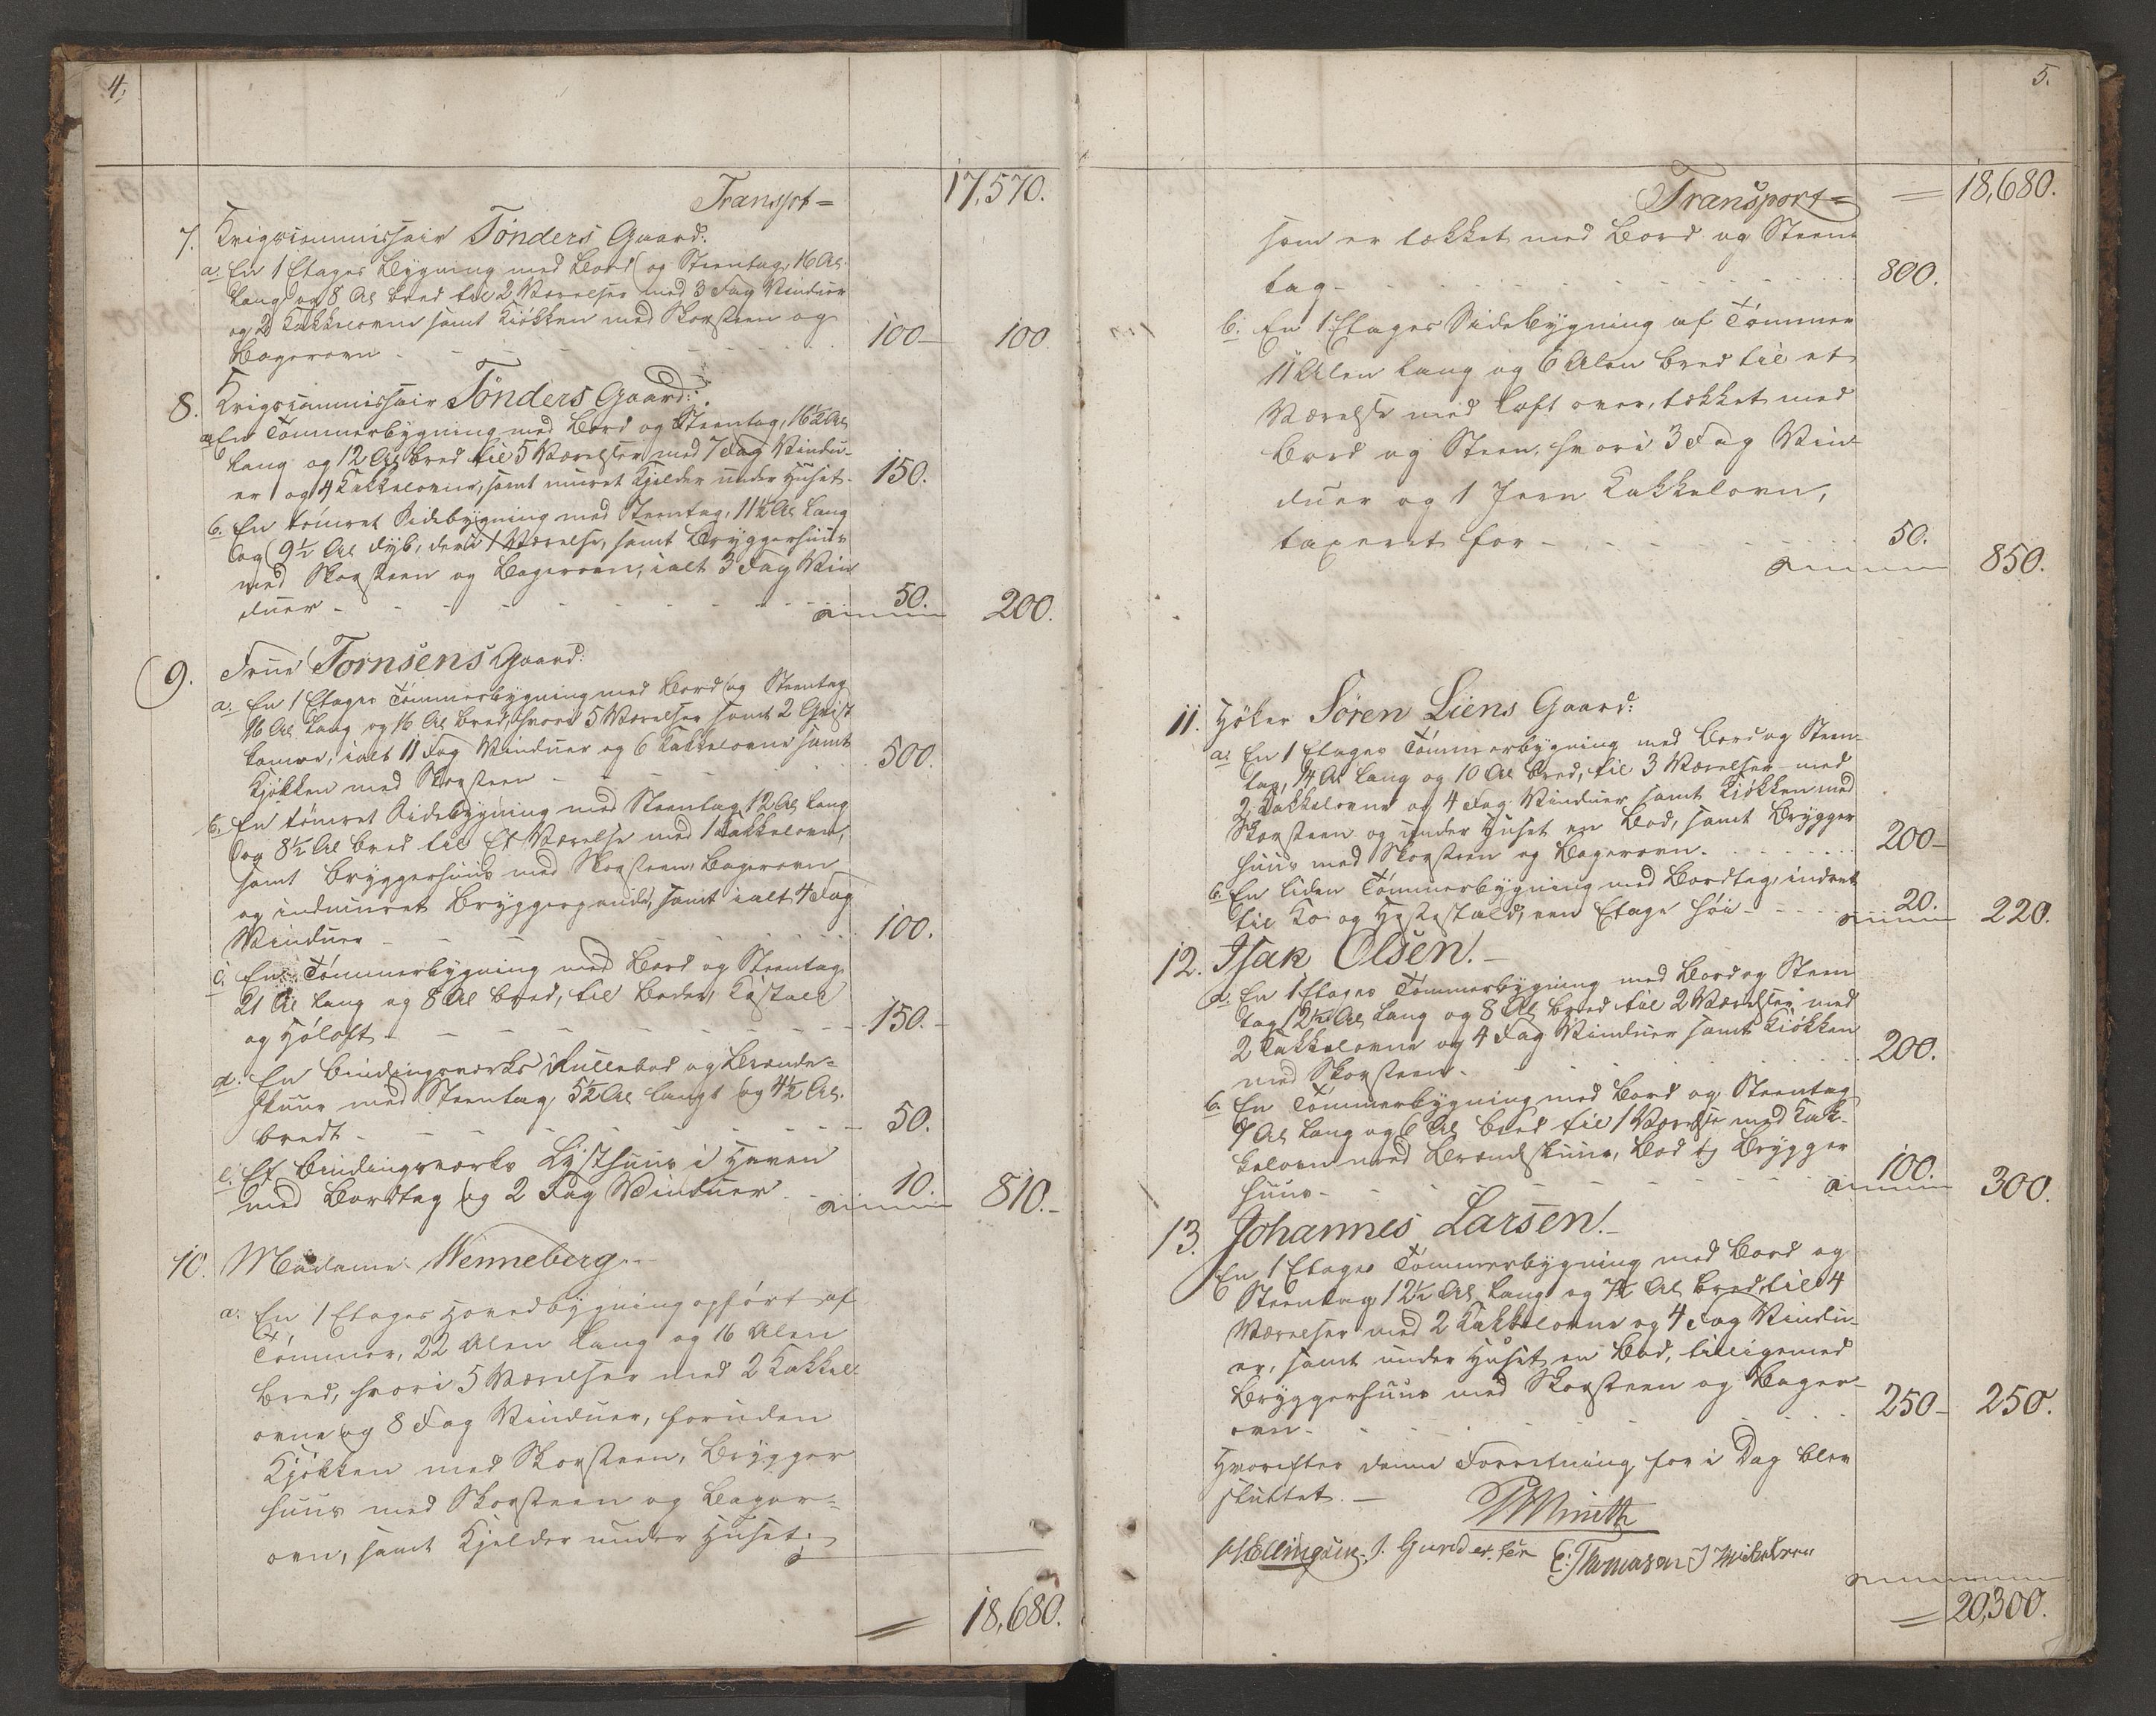 4.
Transpt = 17,570.
7. Krigscommissair Tönders Gaard:
a. En 1 Etages Bygning med Bord og Steentag, 16 Al.
lang og 8 Al bred til 2 Værelser med 3 Fag Vinduer
og 2 Kakkelovne samt Kiökken med Skorsteen og
Bagerovn - 100 - 100
8. Krigscommissair Tönders Gaard:
a En Tömmerbygning med Bord og Steentag, 16½ Al
lang og 12 Al bred til 5 Værelser med 7 Fag Vindu-
er og 4 Kakkelovne, samt muret Kjelder under Huset - 150.
b. En tömret Sidebygning med Steentag, 11½ Al lang
og 9½ Al dyb, deri 1 Værelse, samt Bryggerhuus
med Skorsteen og Bagerovn, ialt 3 Fag Vin
duer - 50. 200.
9. Frue Tornsens Gaard:
a. En 1 Etages Tömmerbygning med Bord og Steentag
16 Al lang og 16 Al bred, hvori 5 Værelser samt 2 Gvist
kamre, ialt 11 Fag Vinduer og 6 Kakkelovne samt
Kjökken med Skorsteen - 500.
b. En tömret Sidebygning med Steentag 12 Al lang
og 8½ Al bred til Et Værelse med 1 Kakkelovn,
samt Bryggerhuus med Skorsteen, Bagerovn
og indmuret Bryggerpande, samt ialt 4 Fag
Vinduer - 100.
c. En Tömmerbygning med Bord og Steentag
21 Al lang og 8 Al bred, til Boder, Costald
og Höloft - 150. -
d. En Bindingsverks Rullebod og Brænde-
skuur med Steentag, 5½ Al langt og 4½ Al.
bredt - 50.
e. Et Bindingsverks Lysthuus i Haven
med Bordtag og 2 Fag Vinduer - 10. 810. -
10. Madame Wenneberg. -
a. En 1 Etages Hovedbygning opfört af
Tömmer, 22 Alen lang og 16 Alen
bred, hvori 5 Værelser med 2 Kakkel-
ovne og 8 Fag Vinduer, foruden
Kjökken med Skorsteen, Brygger
huus med Skorsteen og Bager-
ovn, samt Kjelder under Huset.
= 18,680.
5.
Transport = = 18,680.
som er tækket med Bord og Steen-
tag - 800.
b. En 1 Etages Sidebygning af Tömmer
11 Alen lang og 6 Alen bred til et
Værelse med Loft over, tækket med
Bord og Steen, hvori 3 Fag Vin
duer og 1 Jern Kakkelovn,
taxeret for - 50. 850.
11. Höker Sören Liens Gaard:
a. En 1 Etages Tömmerbygning med Bord og Steen-
tag, 14 Al lang og 10 Al bred, til 3 Værelser med
2 Kakkelovne og 4 Fag Vinduer samt Kiökken med
Skorsteen og under Huset en Bod, samt Brygger
huus med Skorsteen og Bagerovn. 200 -
b. En liden Tömmerbygning med Bordtag, indret
til Ko- og Hestestald, een Etage höi - 20. 220.
12. Isak Olsen. -
a. En 1 Etages Tömmerbygning med Bord og Steen
tag 12½ Al lang og 8 Al bred til 2 Værelser med
2 Kakkelovne og 4 Fag Vinduer samt Kiökken
med Skorsteen - 200.
b. En Tömmerbygning med Bord og Steentag
7 Al lang og 6 Al bred til 1 Værelse med Kak-
kelovn med Brændskuur, Bod og Brygger
huus - 100. 300.
13. Johannes Larsen. -
En 1 Etages Tömmerbygning med Bord og
Steentag 12½ Al lang og 7½ Al bred, til 4
Værelser med 2 Kakkelovne og 4 Fag Vindu-
er, samt under Huset en Bod, tilligemed
Bryggerhuus med Skorsteen og Bager-
ovn - 250 - 250.
Hvorefter denne Forretning for i Dag blev
sluttet. -
Ellingsen. J. Gundersen E: Thomasen J Mickelsen
= 20,300.